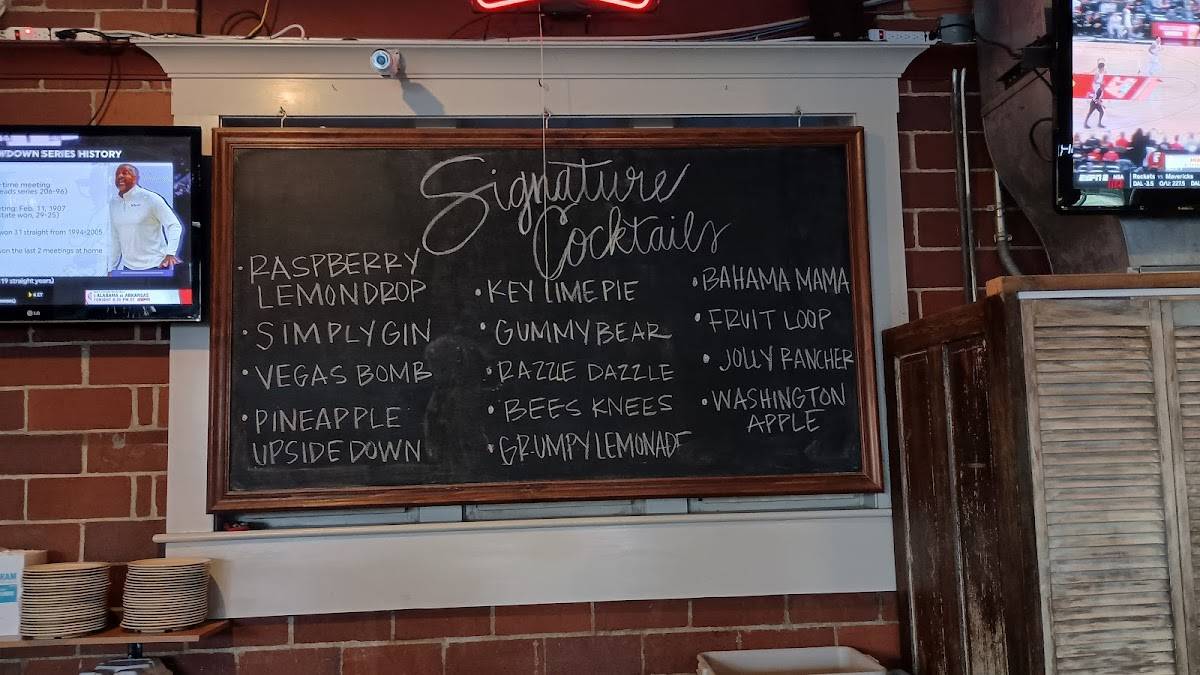 Signature
Cocktails
·RASPBERRY
LEMONDROP
·SIMPLY GIN
·VEGAS BOMB
·PINEAPPLE
UPSIDE DOWN
·KEY LIME PIE
·GUMMY BEAR
·RAZZLE DAZZLE
·BEES KNEES
·GRUMPY LEMONADE
·BAHAMA MAMA
·FRUIT LOOP
·JOLLY RANCHER
·WASHINGTON
APPLE
WDOWN SERIES HISTORY
time meeting
eads series 206-96)
ting: Feb. 11, 1907
state won, 29-25)
won 31 straight from 1994-2005
won the last 2 meetings at home
19 straight years)
ALABAMA vs ARKANSAS
LG
Rockets vs Mavericks
DAL -3.5 O/U: 227.5
NBA